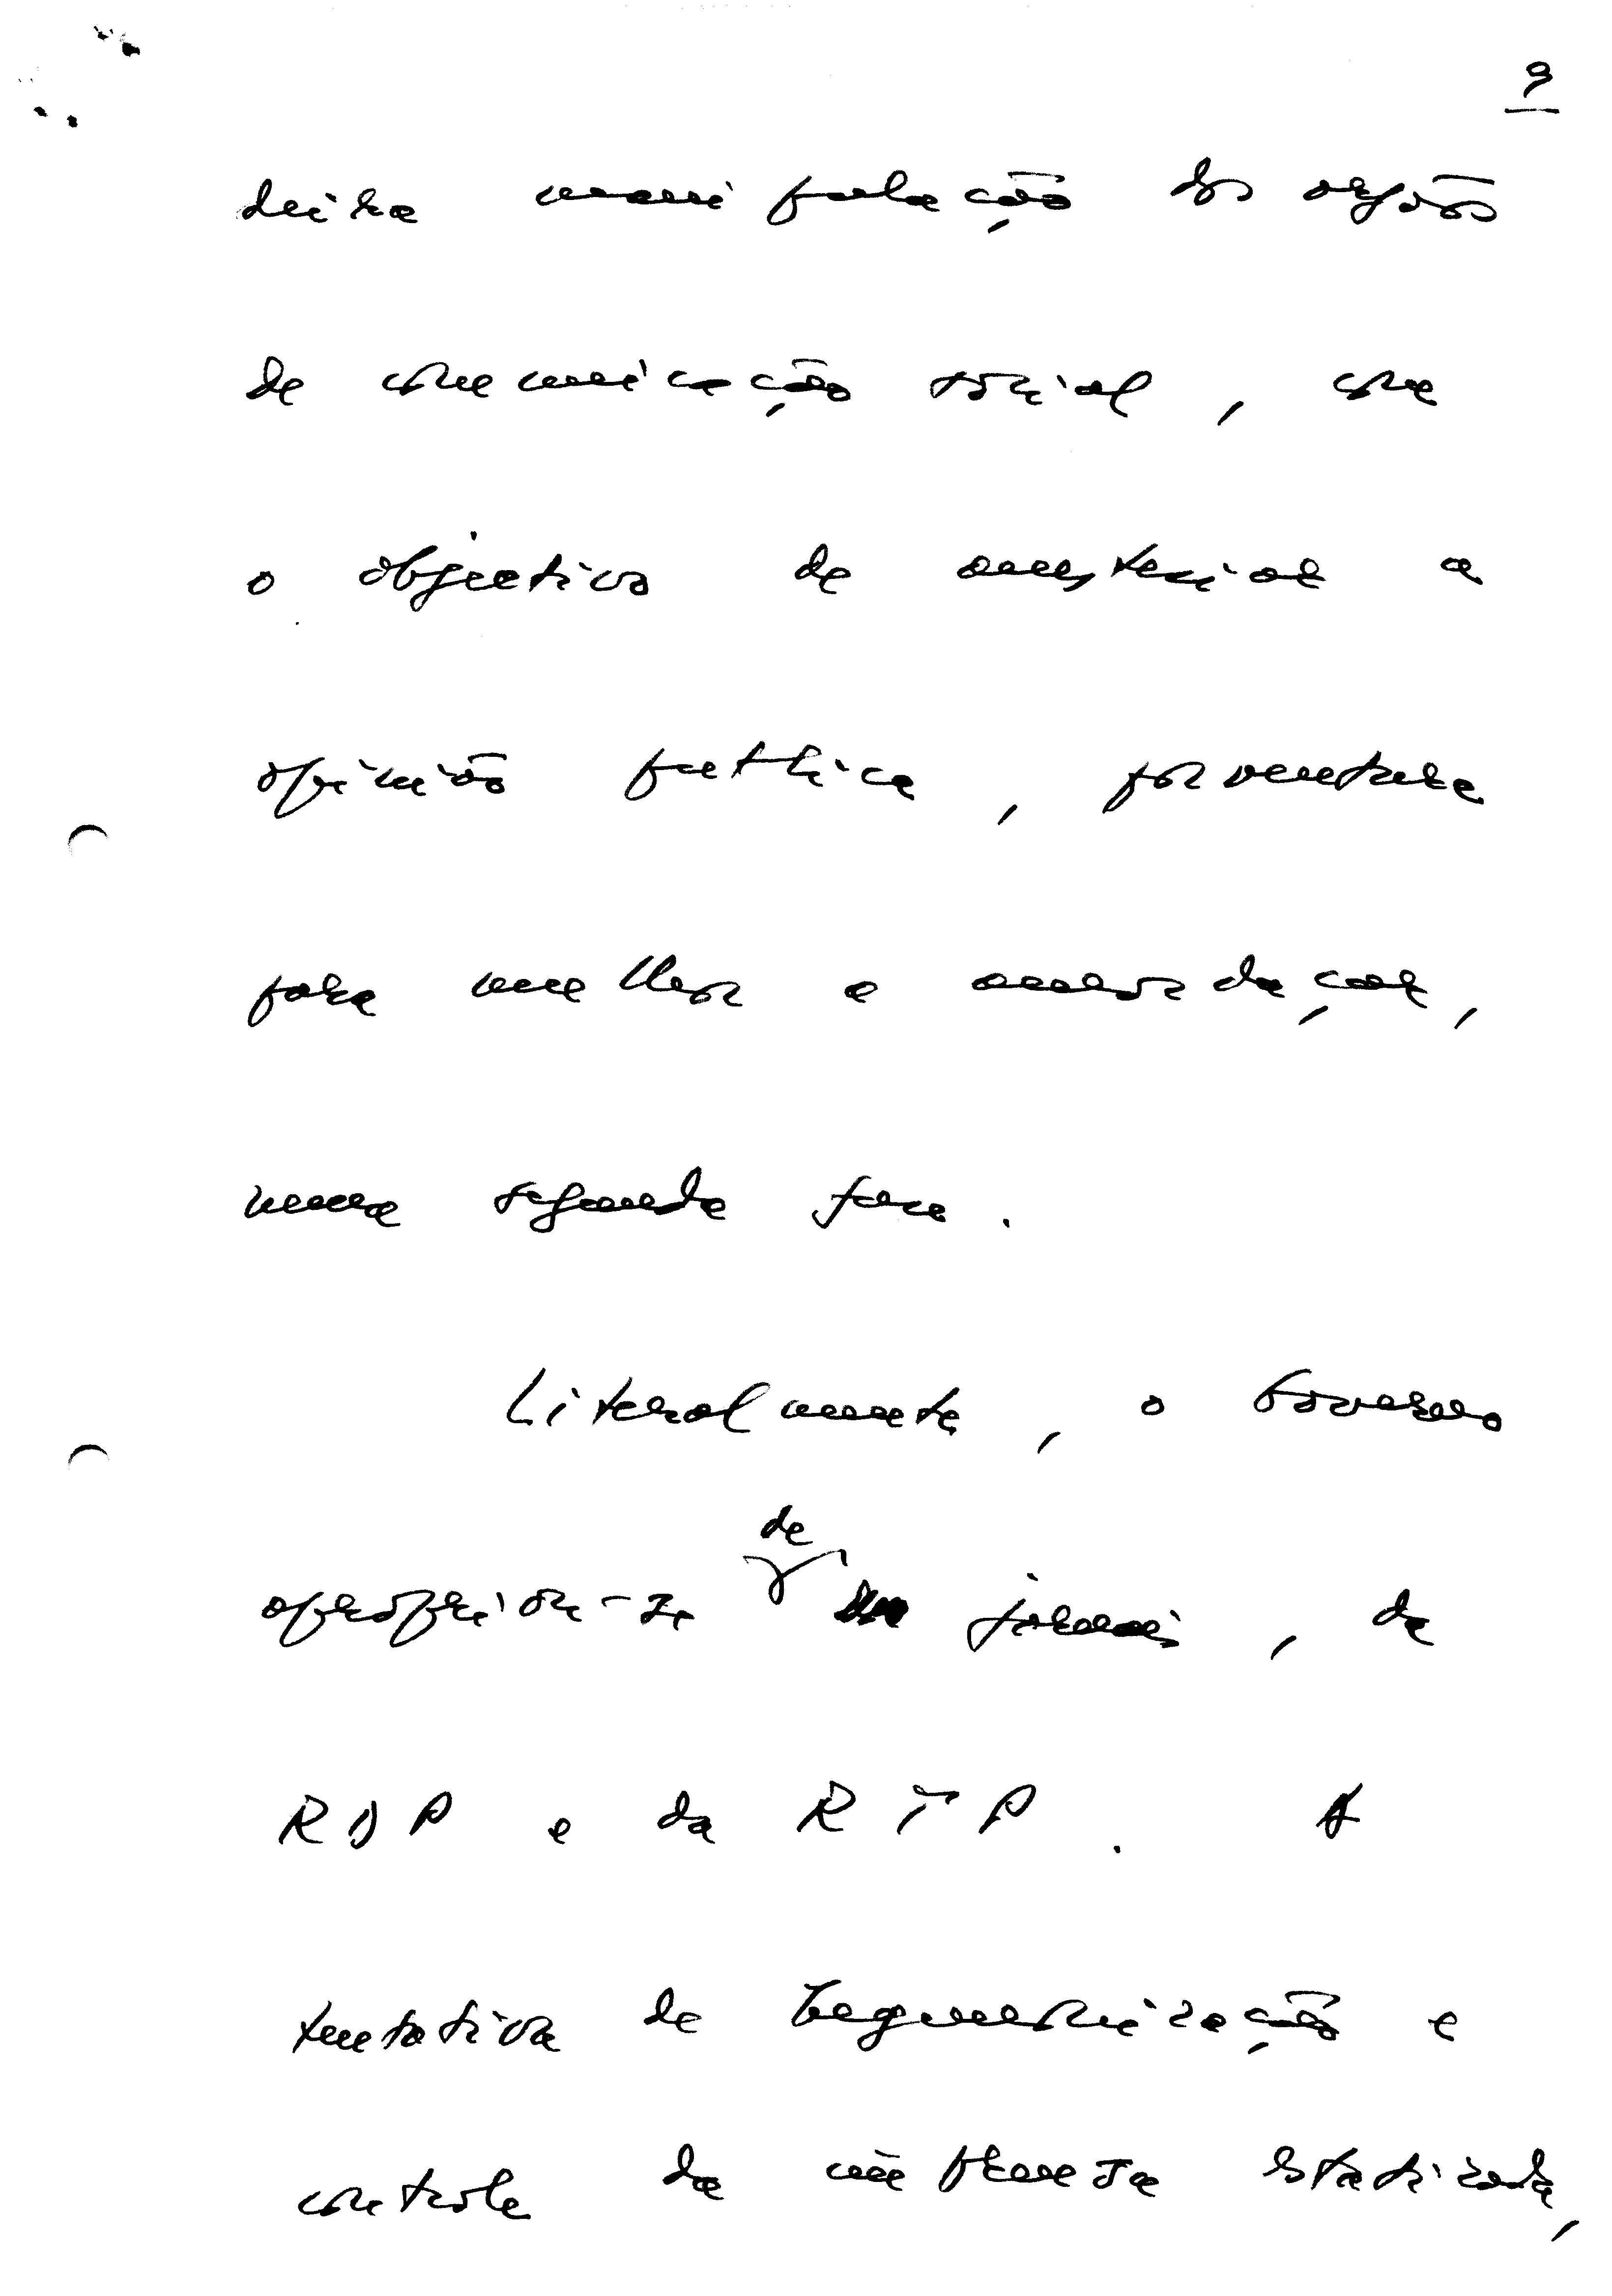 9
deira manipulação dos orgãos
de comunicação social, com
o objectivo de anestesiar a
opinião publica, porventura
para melhor a amordaçar,
numa segunda fase.
Literalmente, o Governo
de
apropriou-se jornais, da
RDP e da RTP. A
tentativa de hegemonização e
controle da imprensa estatizada,